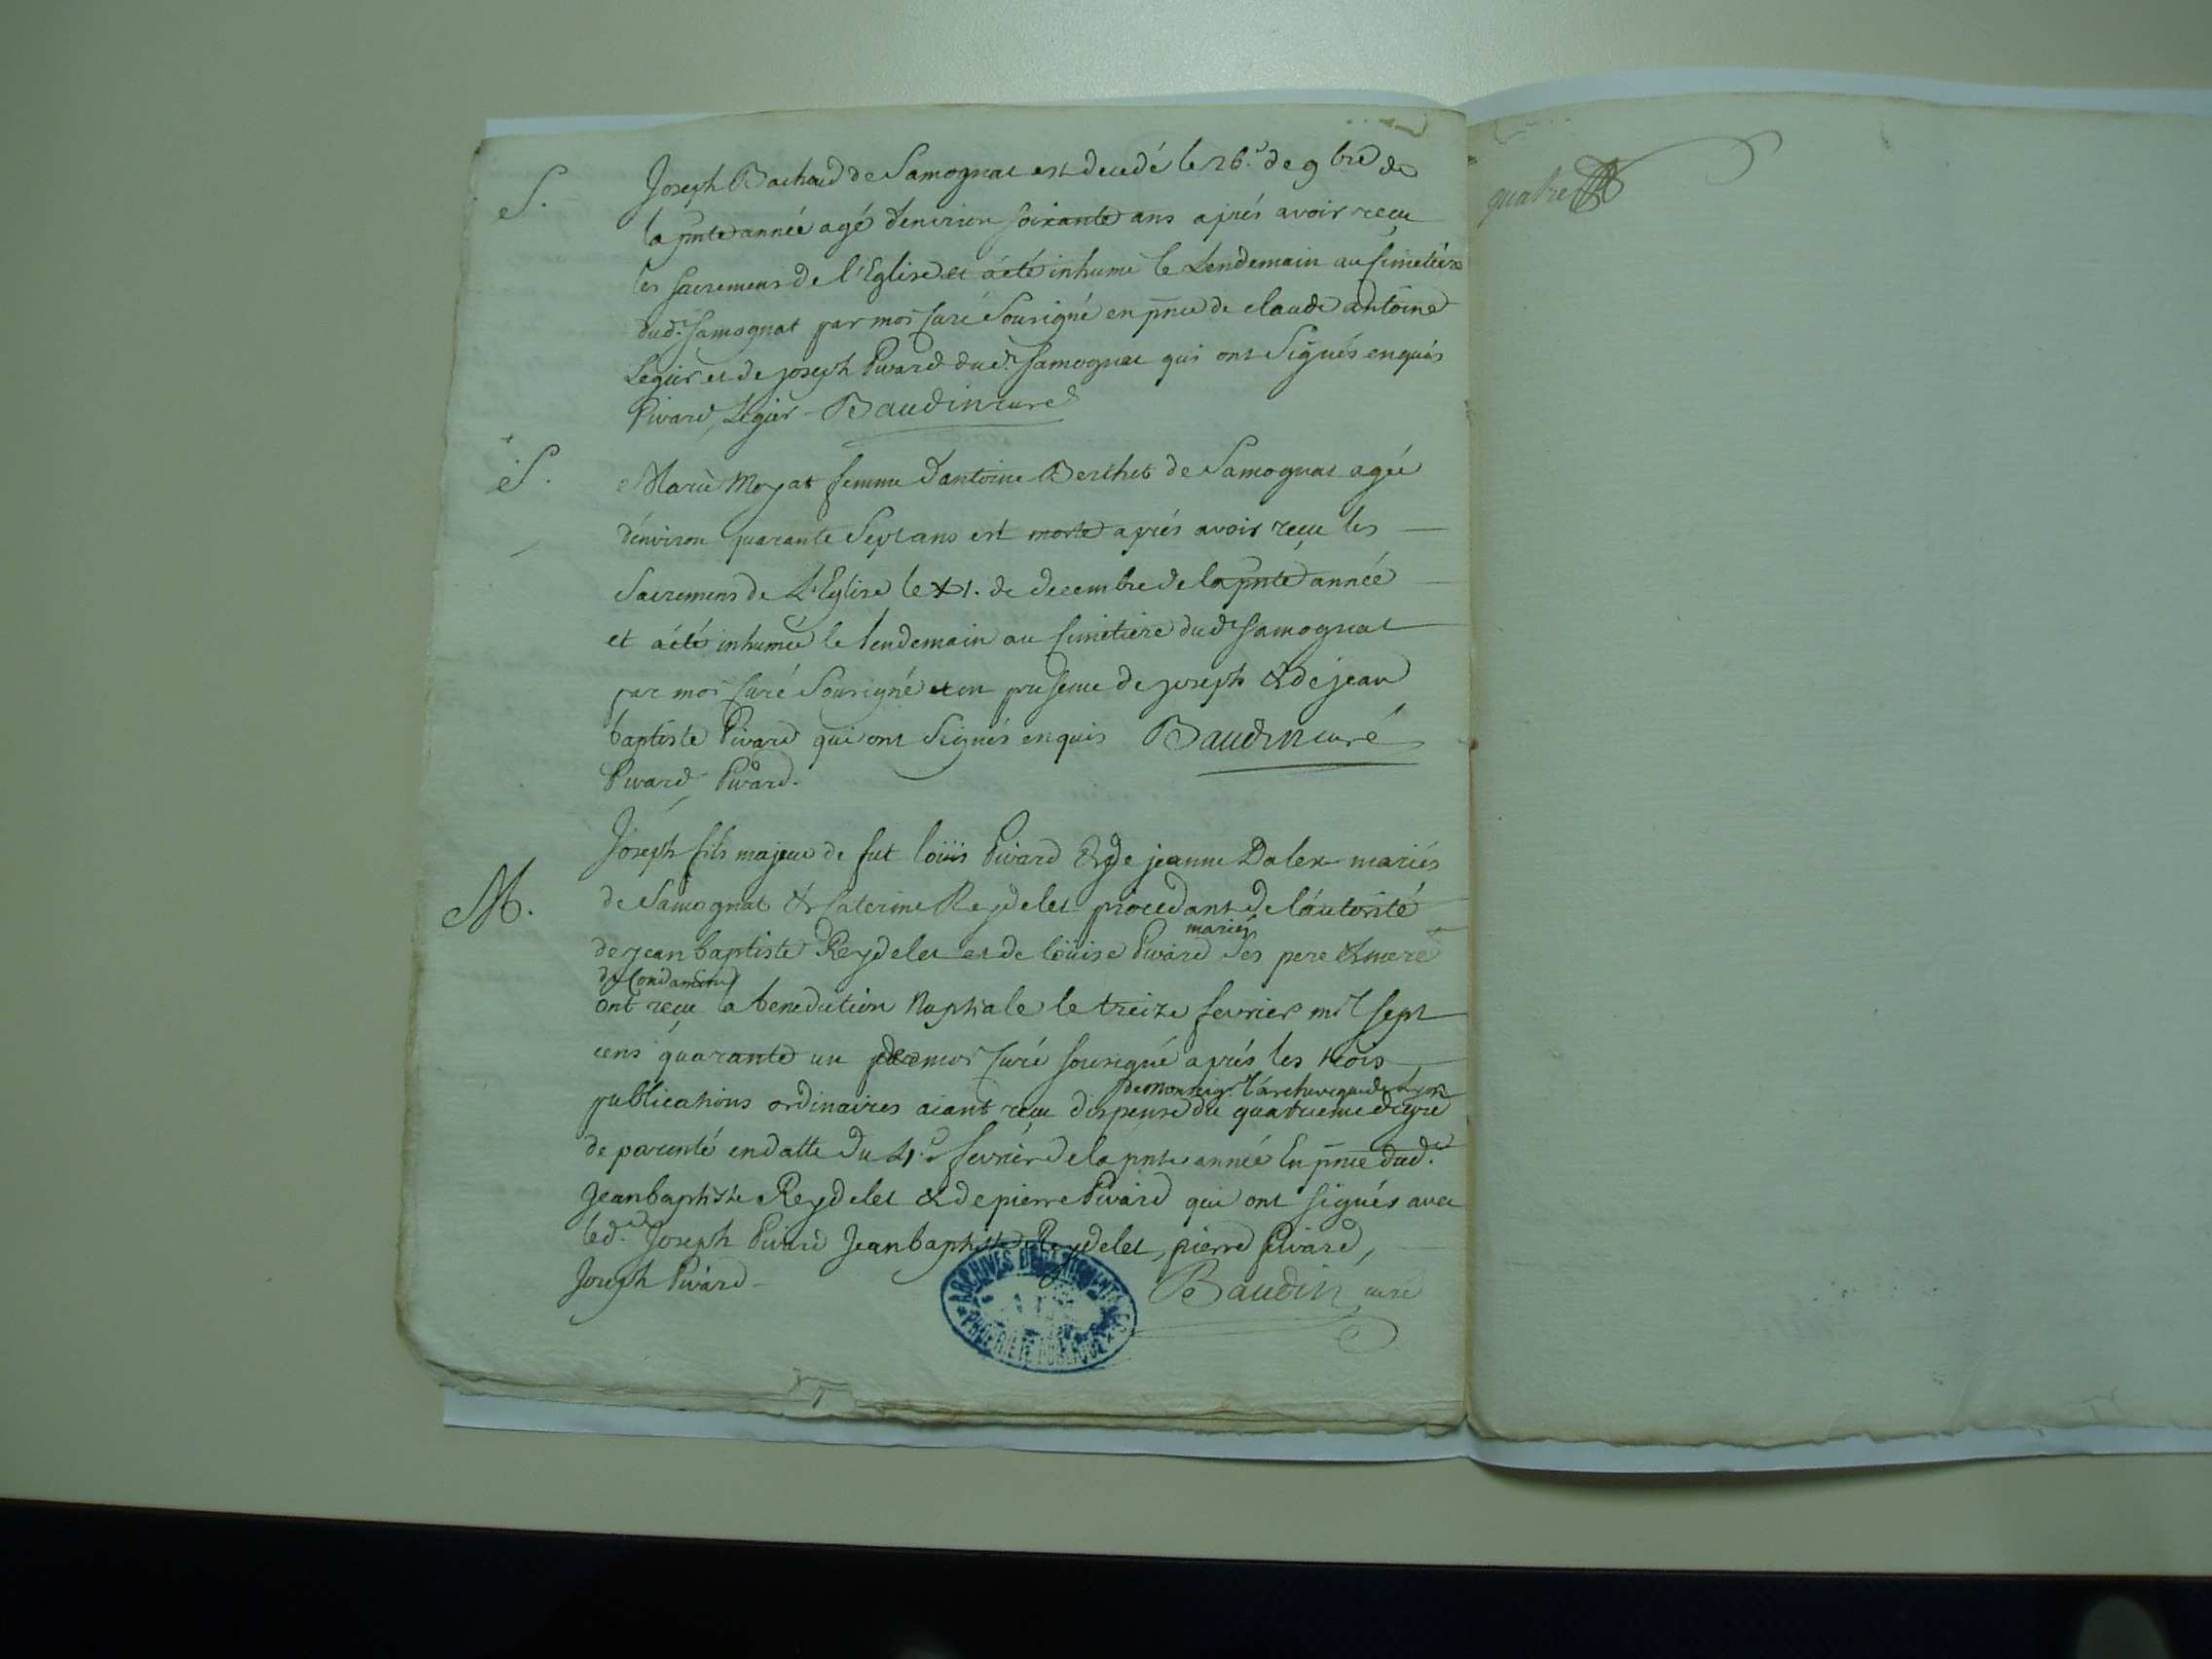 S.
Joseph Bachod de Samognat est decedé le 26.e de 9bre de
la pnte année agé denviron soixante ans aprés avoir recu
les sacremens de l'Eglise et a été inhumé le Lendemain au Cimetiere
dud. Samognat par moi Curé Sousigné en pnce de claude antoine
Legier et de joseph Pivard dud. Samognat qui ont Signés enquis
Pivard, Legier Baudin curé
S.
Marie Moyat femme d'antoine Berthet de Samognat agée
d'environ quarante Sept ans est morte aprés avoir recu les
Sacremens de L'Eglise le 1. de decembre de la pnte année
et a été inhumée le lendemain au Cimetiere dud Samognat
par moi Curé Sousigné et en presence de joseph & de jean
baptiste Pivard qui ont Signés enquis Baudin curé
Pivard Pivard.
M.
Joseph fils majeur de fut loüis Pivard & de jeanne Dalex mariés
de Samognat & Caterine Reydelet procedant de l'autorité
mariés
de jean baptiste Reydelet et de loüise Pivard Ses pere & mere
de Condamine
ont reçu la benediction Nuptiale le treize fevrier mil sept
cens quarante un par moi Curé sousigné aprés les trois
de monseigr. l'archeveque de Lyon
publications ordinaires aiant recu dispense du quatrieme degré
de parenté en datte du 4.e fevrier de la pnte année En pnce dud.
Jean baptiste Reydelet & de pierre Pivard qui ont signés avec
led. Joseph Pivard Jean baptiste Reydelet, pierre Pivard,
Joseph Pivard Baudin curé
ARCHIVES DEPARTEMENTALES
AIN
PROPRIETE PUBLIQUE
quatre